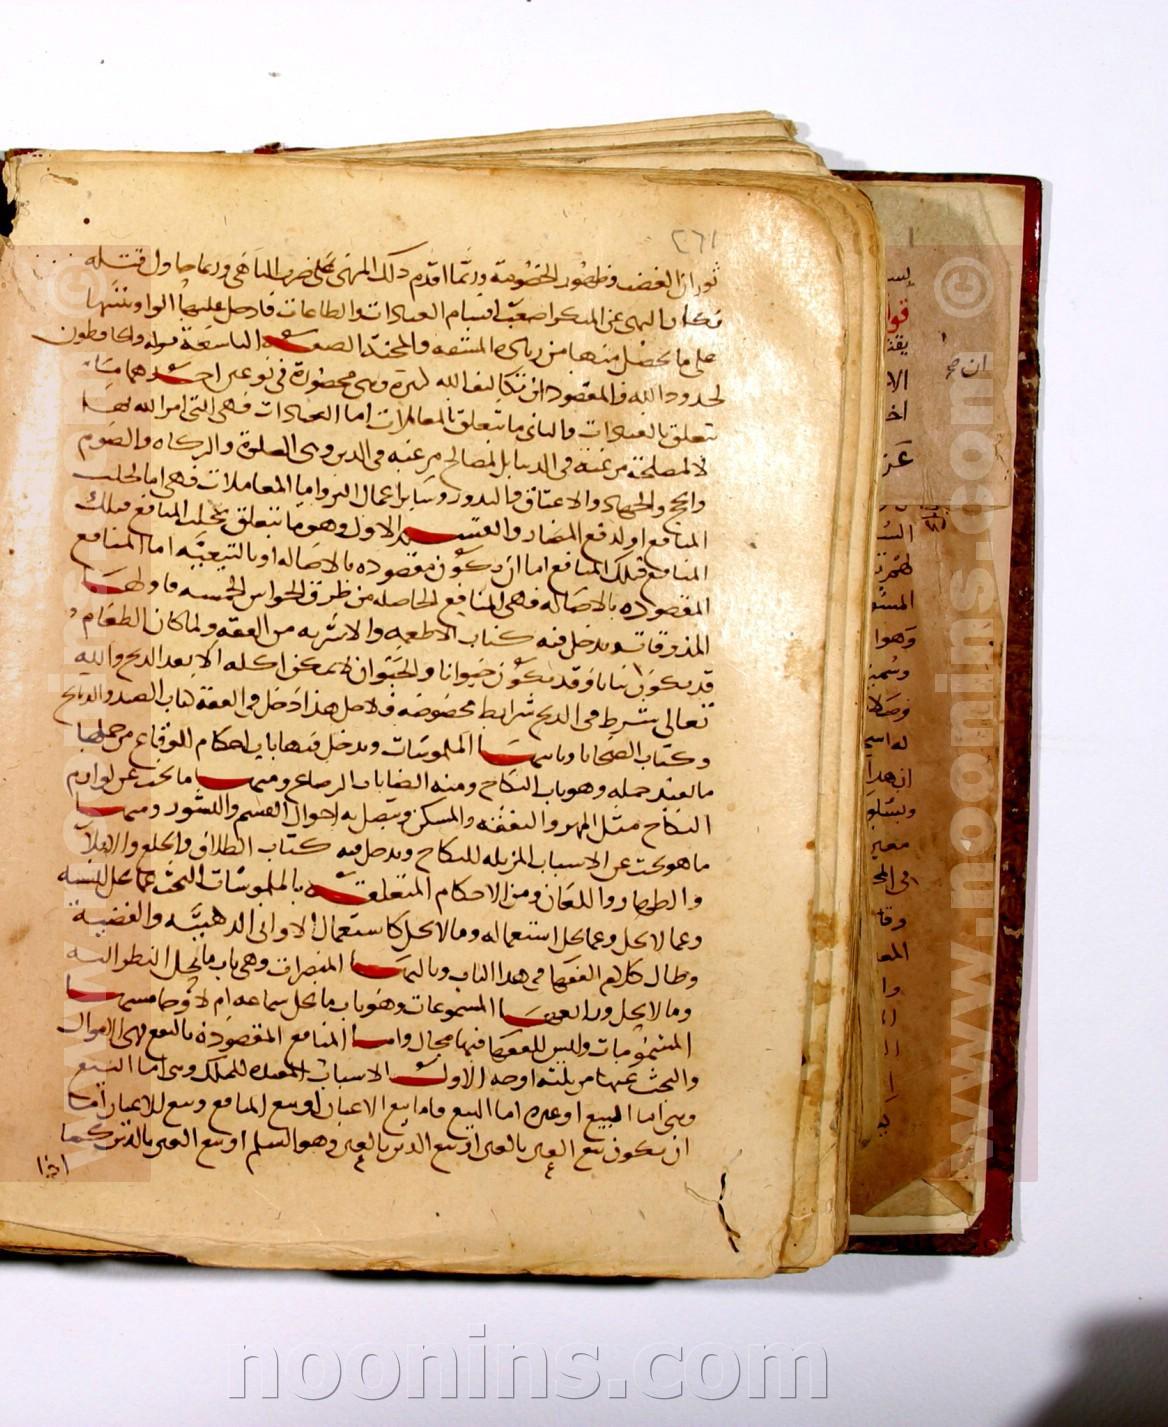 ٢٦١
ثوران الغضب وظهور الخصومة وربما اقدم ذلك المنهى على ضرب الناهى وربما حاول قتله
فكان النهى عن المنكر اصعب اقسام العبادات والطاعات فادخل عليها الواو تنبيها
على ما يحصل فيها من زيادة المشقة والمحنة الصفة التاسعة قوله والحافظون
لحدود الله والمقصود ان تكاليف الله كثيرة وهى محصورة فى نوعين احدهما ما
يتعلق بالعبادات والثانى ما يتعلق بالمعاملات اما العبادات فهى التى امر الله بها
لا لمصلحة مرعية فى الدنيا بل لمصالح مرعية فى الدين وهى الصلوة والزكاه والصوم
والحج والجهاد والاعتاق والنذور وسائر اعمال البر واما المعاملات فهى اما لجلب
المنافع او لدفع المضار والقسم الاول وهو ما يتعلق بجلب المنافع فتلك
المنافع فتلك المنافع اما ان تكون مقصوده بالاصاله او بالتبعيه اما المنافع
المقصوده بالاصاله فهى المنافع الحاصله من طرق الحواس الخمسه فاولها
المذوقات ويدخل فيه كتاب الاطعمه والاشربه من الفقه ولما كان الطعام
قد يكون نباتا وقد يكون حيوانا والحيوان لا يمكن اكله الا بعد الذبح والله
تعالى شرط فى الذبح شرائط مخصوصه فلاجل هذا دخل فى الفقه كتاب الصيد والذبائح
وكتاب الضحايا وثانيها الملموسات ويدخل فيها باب احكام الوقاع من جملتها
ما يفيد حله وهو باب النكاح ومنه ايضا باب الرضاع ومنها ما بحث عن لوازم
النكاح مثل المهر والنفقة والمسكن ويتصل به احوال القسم والنشوز ومنها
ما هو بحث عن الاسباب المزيله للنكاح ويدخل فيه كتاب الطلاق والخلع والايلا
والظهار واللعان ومن الاحكام المتعلقة بالملموسات البحث عما يحل لبسه
وعما لا يحل وعما يحل استعماله وما لا يحل كاستعمال الاوانى الذهبيه والفضية
وطال كلام الفقها فى هذا الباب وثالثها المبصرات وهى باب ما يحل النظر اليه
وما لا يحل ورابعها المسموعات وهو باب ما يحل سماعه ام لا وخامسها
المشمومات وليس للفقها فيها مجال واما المنافع المقصودة بالتبع فهى الاموال
والبحث عنها من ثلثة اوجه الاول الاسباب المفيده للملك وهى اما البيع
وهى اما البيع او غيره اما البيع فاما بيع الاعيان او بيع المنافع وبيع الاعيان اما
ان يكون بيع العين بالعين او بيع الدين بالعين وهو السلم او بيع العين بالدين كما
اذا
ان
قوا
الا
وهوا
انها
www.noonins.com
noonins.com